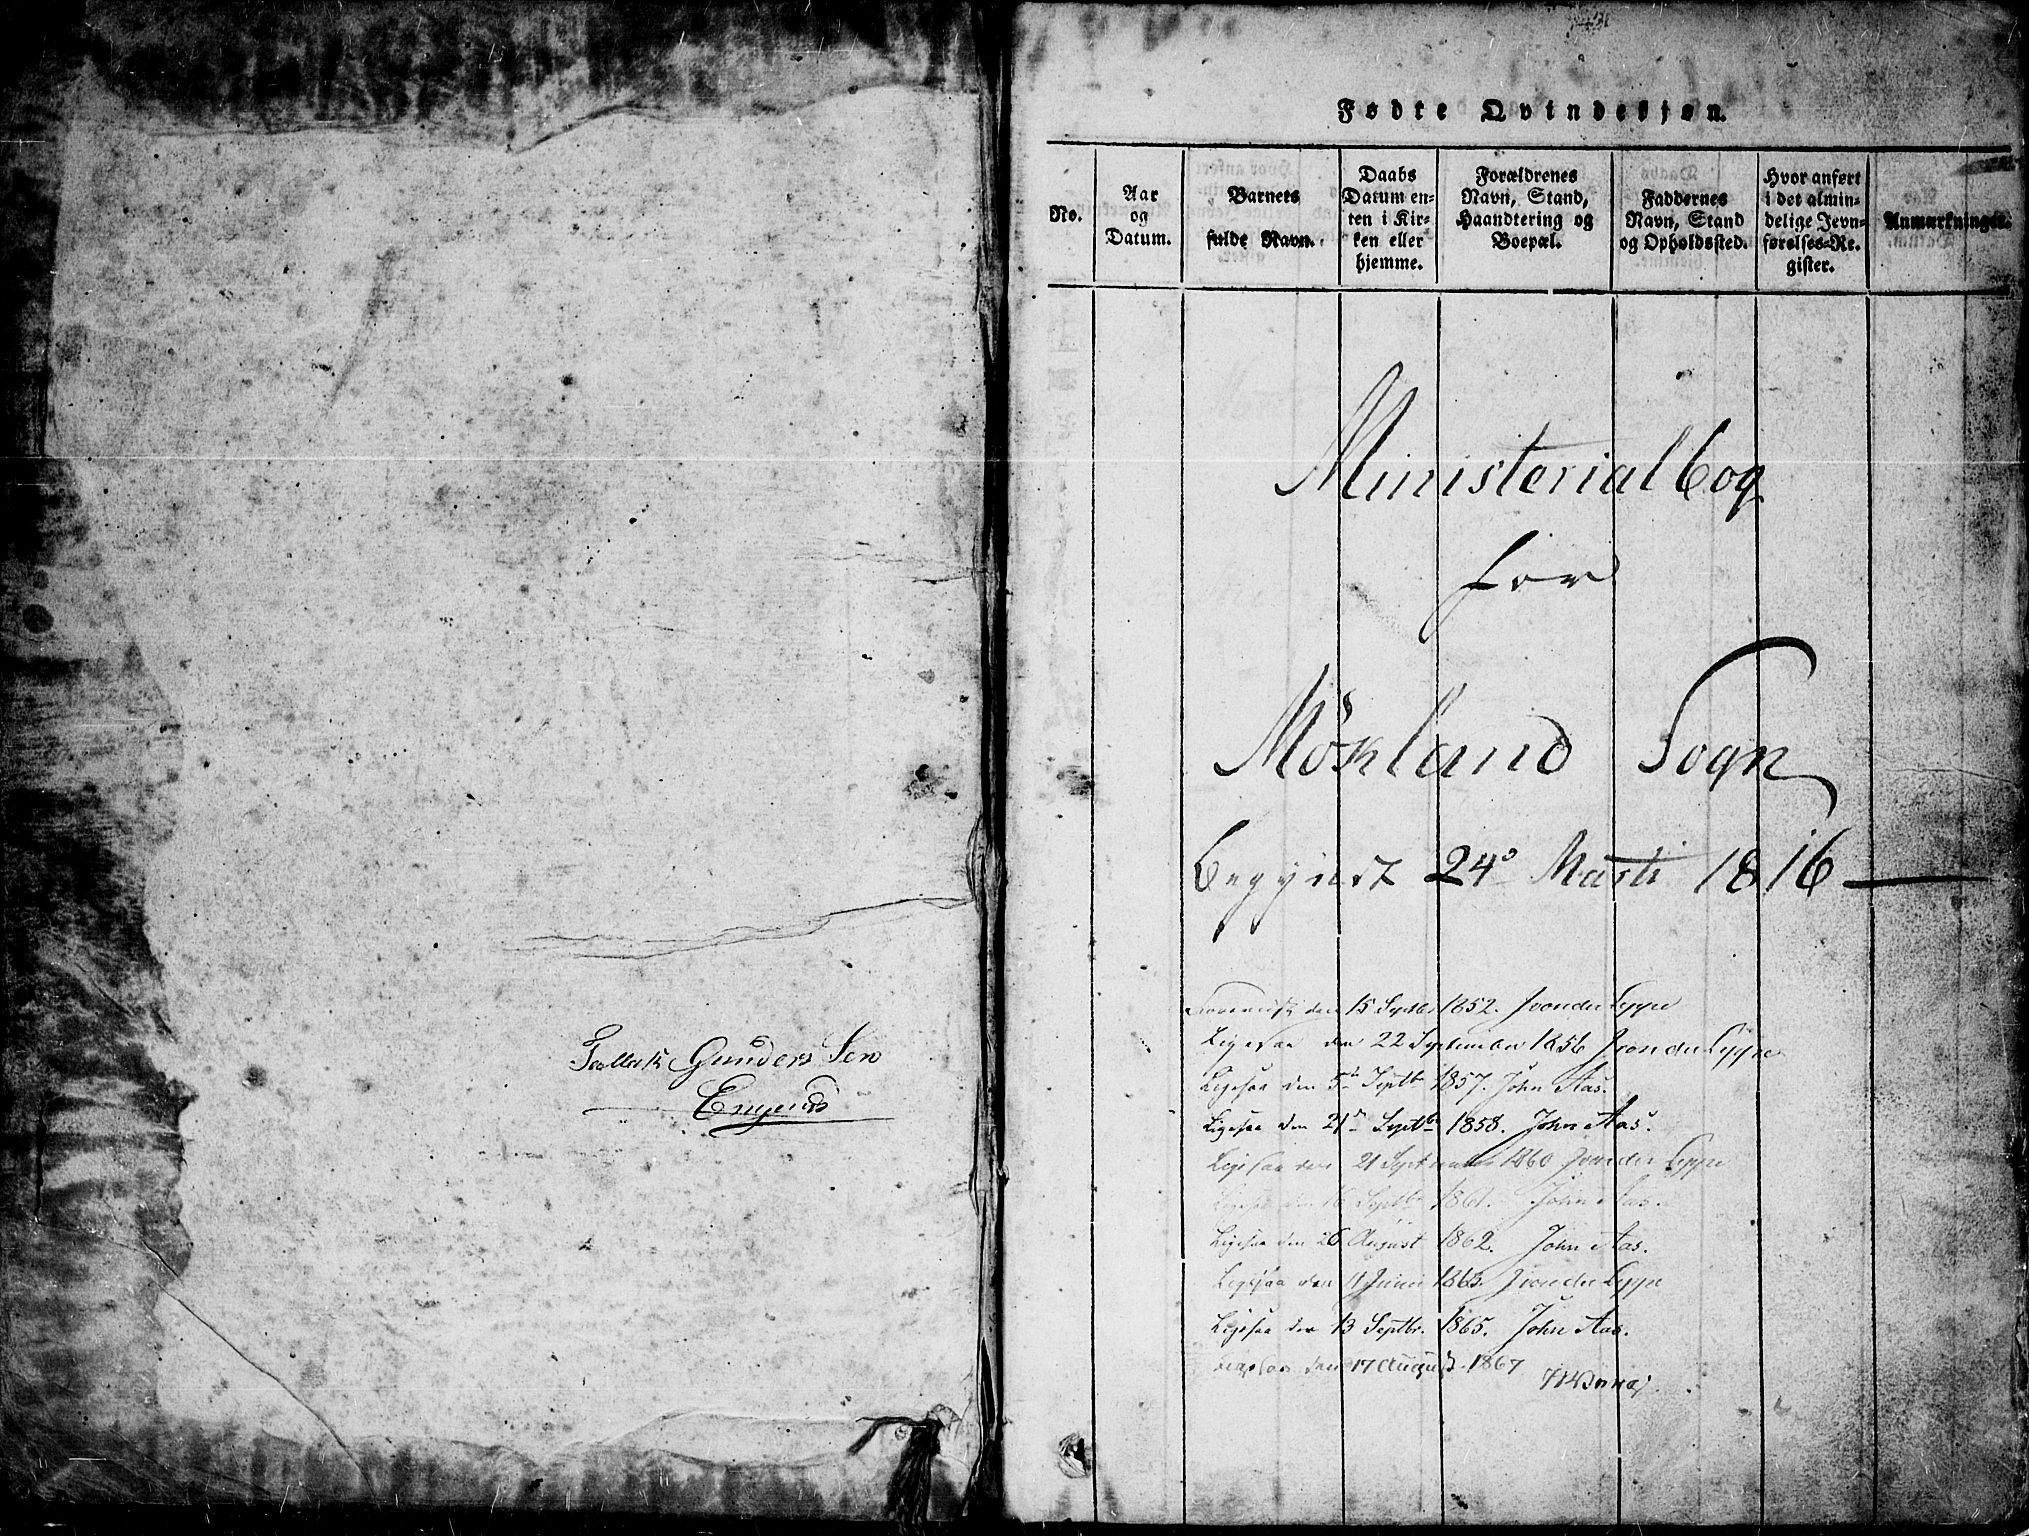 Gunders Sen
Engenes
Fødte Qvindekjøn.
No.
Aar
og
Datum.
Barnets
fulde Navn.
Daabs
Datum en-
ten i Kir-
ken eller
hjemme.
Forældrenes
Navn, Stand,
Haandtering og
Boepæl.
Faddernes
Navn, Stand
og Opholdssted.
Hvor anført
i det almin-
delige Jevn-
førelses-Re-
gister.
Anmærkninger.
Ministerialbog
for
Mökland Sogn
begyndt 24º Marti 1816
den 15 Septbr 1852. J von der Lippe
Ligesaa den 22 September 1856 J von der Lippe
Ligesaa den 5te Septbr 1857. John Aas.
Ligesaa den 21de Septbr 1858. John Aas.
Ligesaa den 21 September 1860 J von der Lippe
Ligesaa den 16 Septbr 1861. John Aas.
Ligesaa den 26 August 1862. John Aas.
Ligesaa den 11 Juni 1863. J von der Lippe
Ligesaa den 13 Septbr. 1865. John Aas.
Ligesaa den 17 August 1867